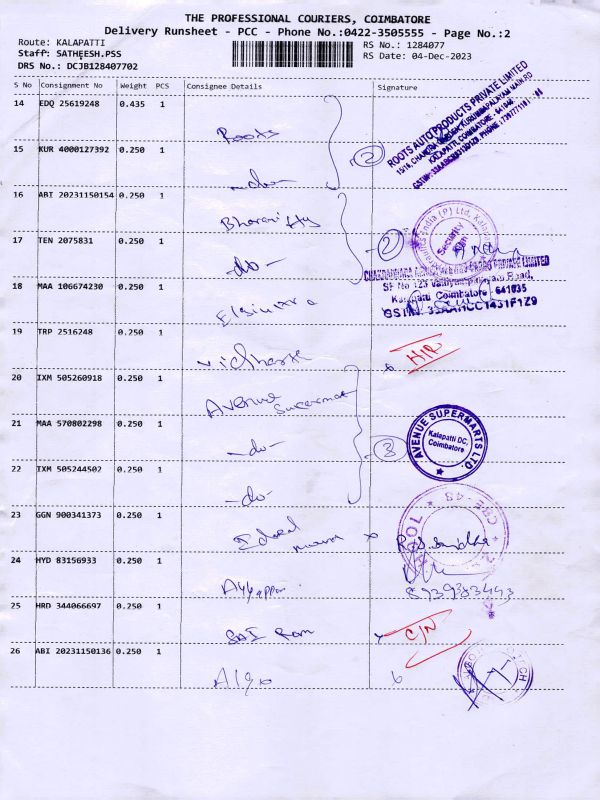 THE PROFESSIONAL COURIERS, COIMBATORE
Delivery Runsheet - PCC - Phone No.:0422-3505555 - Page No.:2
Route: KALAPATTI
RS No.: 1284077
Staff: SATHEESH.PSS
RS Date: 04-Dec-2023
DRS No.: DCJB128407702
S No Consignment No Weight PCS Consignee Details Signature
14 EDQ 25619248 0.435 1
Roots
2
ROOTS AUTO PRODUCTS PRIVATE LIMITED
15 KUR 4000127392 0.250 1
-do-
16 ABI 20231150154 0.250 1
Bharani Hy
2
Security
17 TEN 2075831 0.250 1
-do-
PRIVATE LIMITED
SF No 123
Coimbatore - 641035
18 MAA 106674230 0.250 1
19 TRP 2516248 0.250 1
20 IXM 505260918 0.250 1
Avenue Supermat
3
21 MAA 570802298 0.250 1
-do-
AVENUE SUPERMARTS LTD.
Kalapatti DC,
Coimbatore
22 IXM 505244502 0.250 1
-do-
23 GGN 900341373 0.250 1
24 HYD 83156933 0.250 1
Ayyappan
8939383493
25 HRD 344066697 0.250 1
SAI Ram
26 ABI 20231150136 0.250 1
Algo